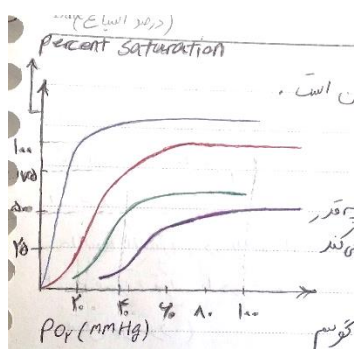 (درصد اشباع)
percent saturation
ن است .
۱۰۰
۷۵
۵۰
۲۵
قدر
می‌کند
۲۰ ۴۰ ۶۰ ۸۰ ۱۰۰
PO₂ (mmHg)